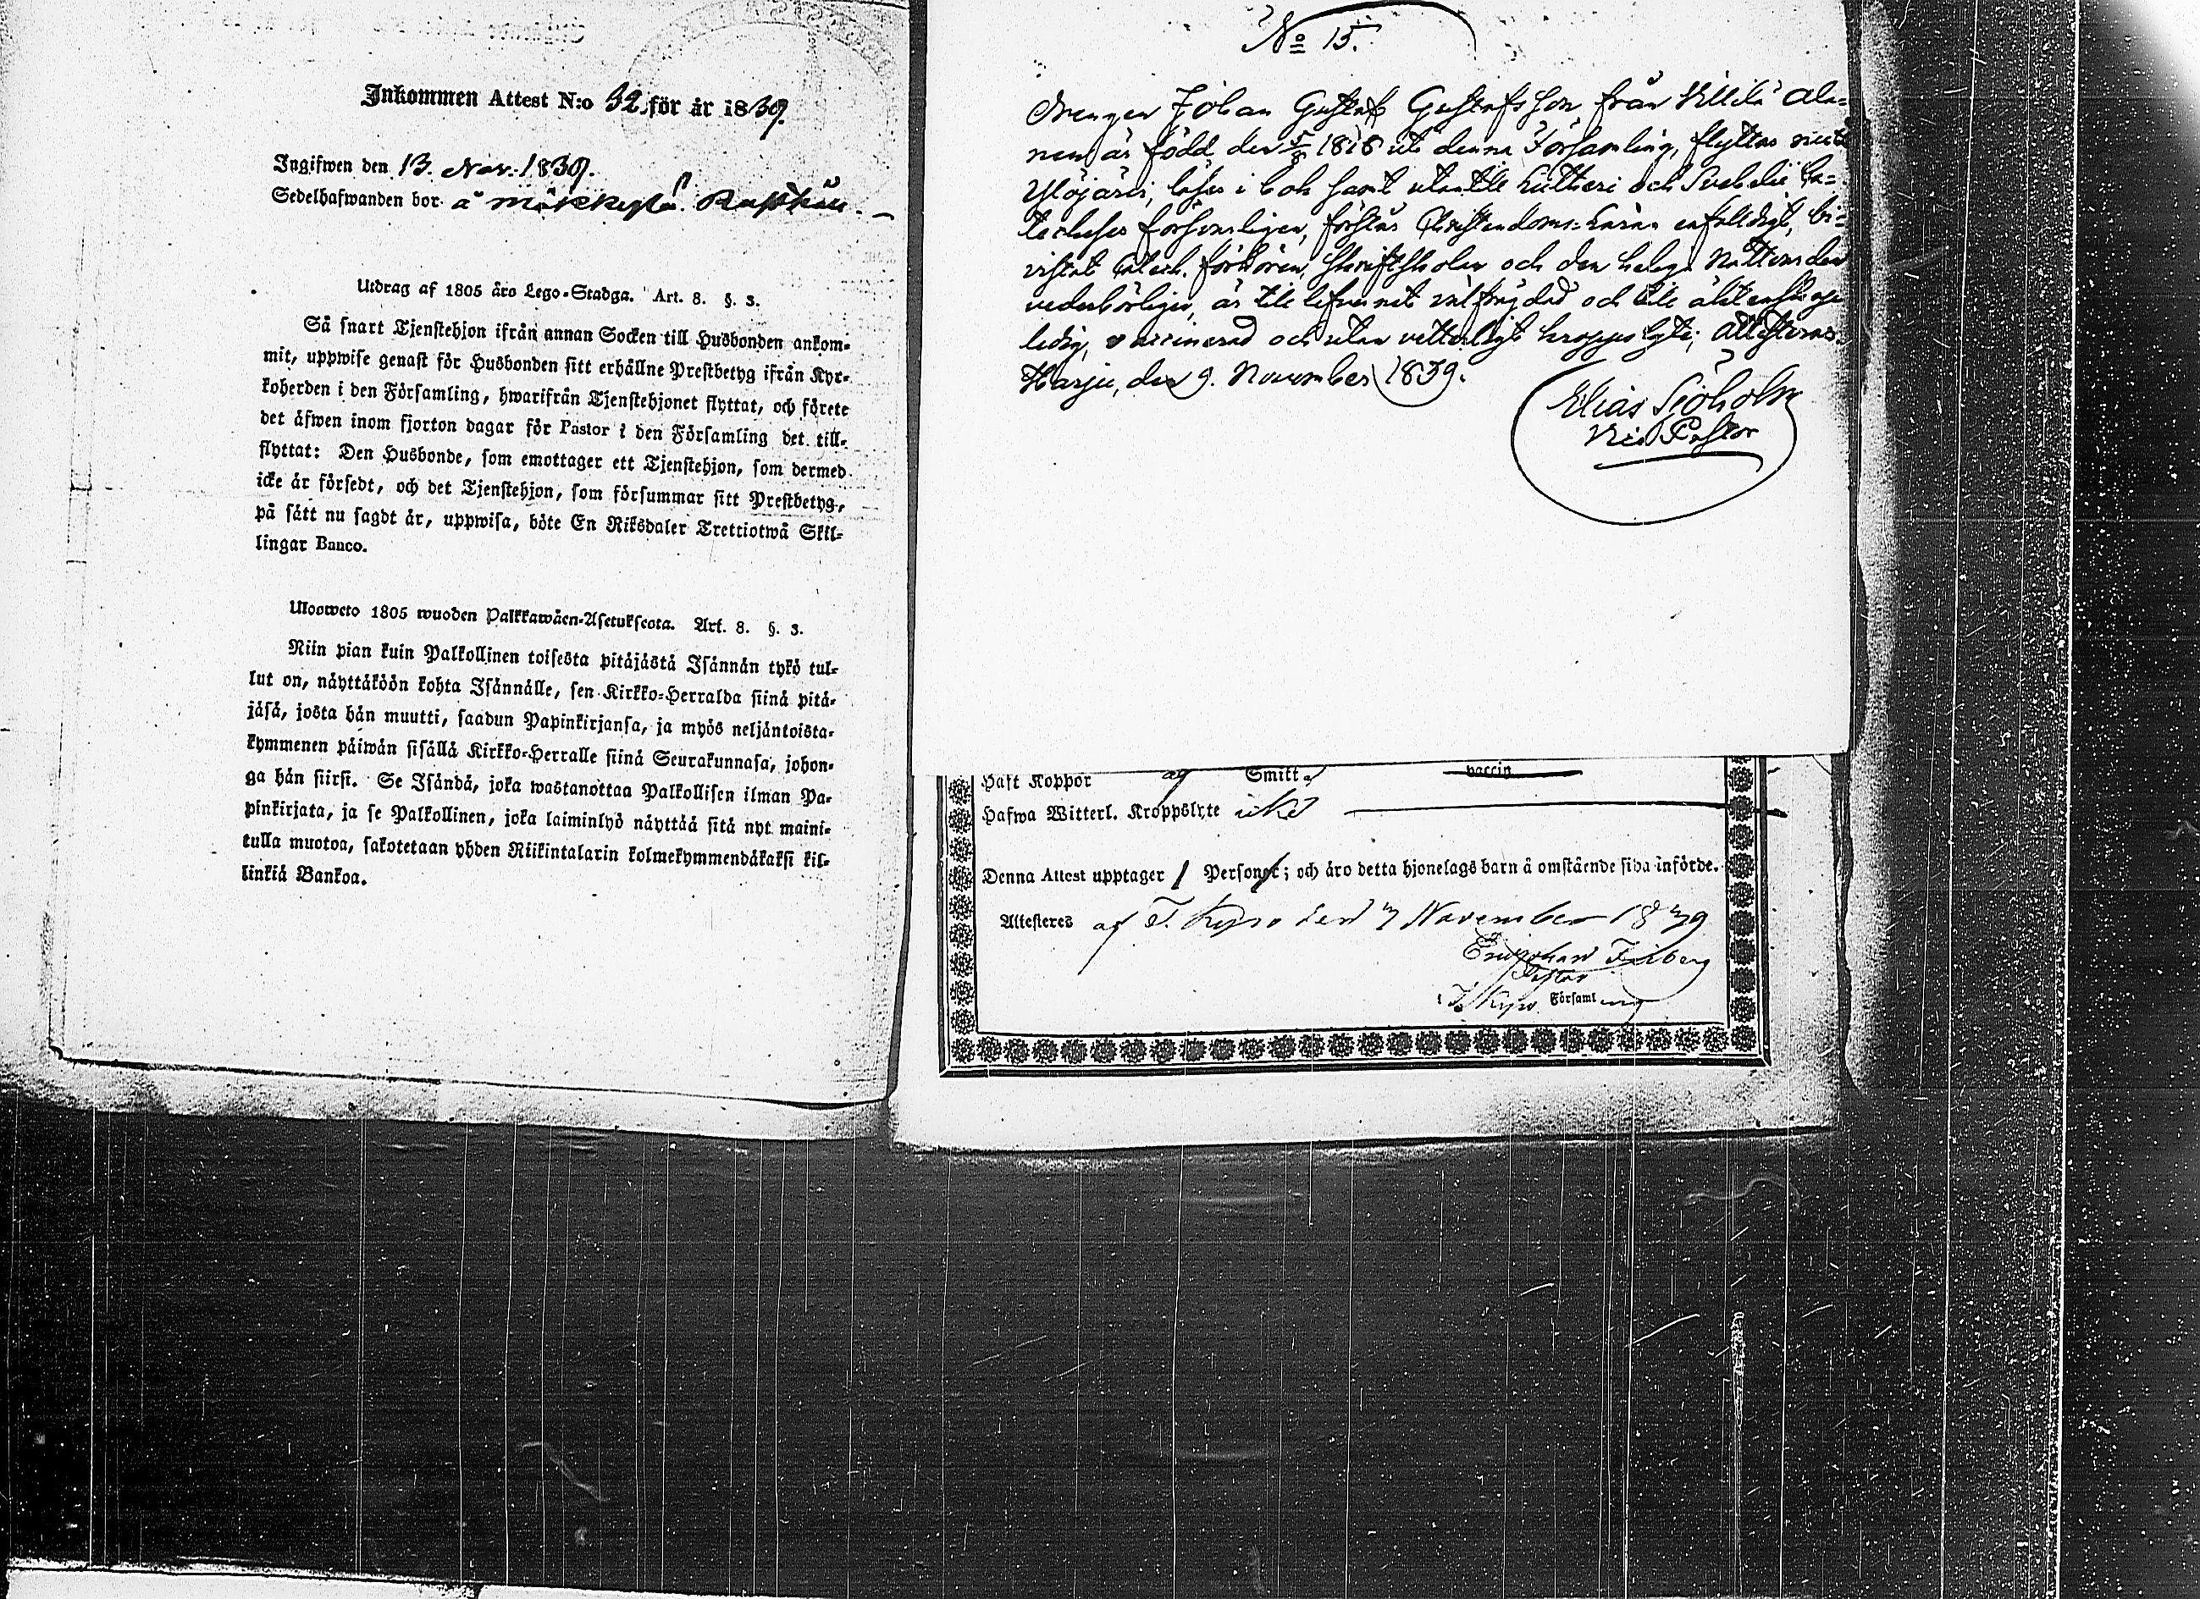 Inkommen Attest N:o 32. för år 1839.
Ingifwen den 13. Nov. 1839.
Sedelhafwanden bor å Mäkkylä
Utdrag af 1805 års Lego-Stadga. Art. 8. §. 3.
Så snart Tjenstehjon ifrån annan Socken till Husbonden ankom-
mit, uppwise genast för Husbonden sitt erhållne Prestbetyg ifrån Kyr-
koherden i den Församling, hwarifrån Tjenstehjonet flyttat, och förete
det äfwen inom fjorton dagar för Pastor i den Församling det till-
flyttat: Den Husbonde, som emottager ett Tjenstehjon, som dermed
icke är försedt, och det Tjenstehjon, som försummar sitt Prestbetyg,
på sätt nu sagdt är, uppwisa, böte En Riksdaler Trettiotwå Skil-
lingar Banco.
Uloosweto 1805 wuoden Palkkawäen-Asetuksesta. Art. 8. §. 3.
Niin pian kuin Palkollinen toisesta pitäjästä Isännän tykö tul-
lut on, näyttäköön kohta Isännälle, sen Kirkko-Herralda siinä pitä-
jäsä, josta hän muutti, saadun Papinkirjansa, ja myös neljäntoista-
kymmenen päiwän sisällä Kirkko-Herralle siinä Seurakunnasa, johon-
ga hän siirsi. Se Isändä, joka wastanottaa Palkollisen ilman Pa-
pinkirjata, ja se Palkollinen, joka laiminlyö näyttää sitä nyt maini-
tulla muotoa, sakotetaan yhden Riikintalarin kolmekymmendäkaksi kil-
linkiä Bankoa.
No 15.
Drengen Johan Gustaf Gustafsson från Villilä Ala-
nen är född den 5/8 1818 uti denna Församling, flyttar nu till
Ylöjärvi, läser i bok samt utantill Lutheri och Svebelii Ca-
techeser försvarligen, förstår Christendoms-Läran enfaldigt, bi-
vistat Catech. förhören, Skriftskolar och den heliga Nattvarden
vederbörligen, är till lefvernet välfrägdad och till äktenskap
ledig, vaccinerad och utan vetterligt kroppslyte; Attesteras.
Harju, den 9. November 1839.
Elias Sjöholm
Vice Pastor
Haft Koppor ag Smitt vaccin
Hafwa Witterl. Kroppslyte icke
Denna Attest upptager 1 Personer; och äro detta hjonelags barn å omstående sida införde.
Attesteres af T. Kyro den 7 November 1839
Eric Johan
Pastor
i T. Kyro Församling